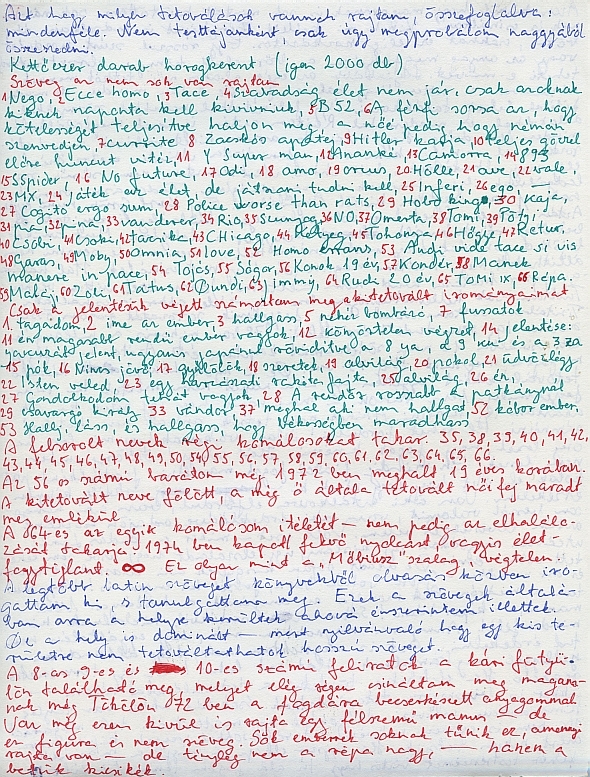 Azt hogy milyen tetoválások vannak rajtam, összefoglalva:
mindenféle. Nem testtájanként, csak úgy megpróbálom nagyjából
összeszedni.
Kettőezer darab horogkereszt (igen 2000 db)
Szöveg az nem sok van rajtam
1 Nego, 2 Ecce homo, 3 Tace, 4 Szabadság élet nem jár, csak azoknak
kiknek naponta kell kivívniuk, 5 B52, 6 A férfi sorsa az, hogy
kötelességét teljesítve haljon meg, a nőé pedig hogy némán
szenvedjen, 7 currite 8 Zacskós apátej 9 Hitler kardja, 10 teljes gőzzel
előre huncut vitéz, 11 Y Super man, 12 Ananké, 13 Camorra, 14 893
15 SSpider, 16 No future, 17 Odi, 18 amo, 19 orcus, 20 Hölle, 21 ave, 22 vale,
23 MX, 24 játék az élet, de játszani tudni kell, 25 Inferi, 26 ego,
27 Cogito ergo sum, 28 Police worse than rats, 29 Hobo king, 30 Kaja,
31 pia, 32 pina, 33 vanderer, 34 Rio, 35 Scumgog, 36 NO, 37 Omerta, 38 Tomi, 39 Potyi
40 Csöbi, 41 Csoki, 42 Tacsika, 43 CHicago, 44 Pötyeg, 45 Tohonya, 46 Högje, 47 Retur,
48 Garas, 49 Moby, 50 Omnia, 51 love, 52 Homo errans, 53 Audi vide tace si vis
manere in pace, 54 Tojós, 55 Sógor, 56 Konok 19 év, 57 Kondér, 58 Manek
59 Maláj, 60 Zoli, 61 Tátus, 62 Öundi, 63 jimmy, 64 Rudi 20 év, 65 ToMi ix, 66 Répa.
Csak a jelentésük végett számoztam meg a kitetovált irományaimat
1. tagadom, 2 íme az ember, 3 hallgass, 5 nehéz bombázó, 7 fussatok
11 én magasabb rendű ember vagyok, 12 könyörtelen végzet, 14 jelentése:
yakuzát jelent, ugyanis japánul rövidítve a 8 ya, a 9 ku és a 3 za
15 pók, 16 Nincs jövő, 17 gyűlölök, 18 szeretek, 19 alvilág, 20 pokol, 21 üdvözlégy
22 Isten veled, 23 egy harcászati rakéta fajta, 25 alvilág, 26 én,
27 Gondolkodom tehát vagyok, 28 A rendőr rosszabb a patkánynál
29 csavargó király 33 vándor 37 meghal aki nem hallgat, 52 kóbor ember,
53 Hallj, láss, és hallgass, hogy békességben maradhass
A felsorolt nevek régi komálósokat takar. 35, 38, 39, 40, 41, 42,
43, 44, 45, 46, 47, 48, 49, 50, 54, 55, 56, 57, 58, 59, 60, 61, 62, 63, 64, 65, 66.
Az 56 os számú barátom még 1972 ben meghalt 19 éves korában.
A kitetovált neve fölött, a még ő általa tetovált női fej maradt
meg emlékül
A 64-es az egyik komálósom ítéletét – nem pedig az elhalálo-
zását takarja. 1974 ben kapott fekvő nyolcast vagyis élet-
fogytiglant. ∞ Ez olyan mint a „Möbiusz" szalag, végtelen.
A legtöbb latin szöveget könyvekből olvasás közben íro-
gattam ki, s tanulgattam meg. Ezek a szövegek általá-
ban arra a helyre kerültek ahová énszerintem illettek.
De a hely is dominált – mert nyilvánvaló hogy egy kis te-
rületre nem tetováltathatok hosszú szöveget.
A 8-as 9-es és 10-es számú feliratok a kári fütyü-
lőn található meg, melyet elég régen csináltam meg magam-
nak még Tökölön 72 ben a fogdára becserkészett anyagommal
Van még ezen kívül is rajta egy félszemű manus – de
ez figura és nem szöveg. Sok embernek soknak tűnik ez, amennyi
rajta van – de tényleg nem a répa nagy, – hanem a
betűk kicsikék.